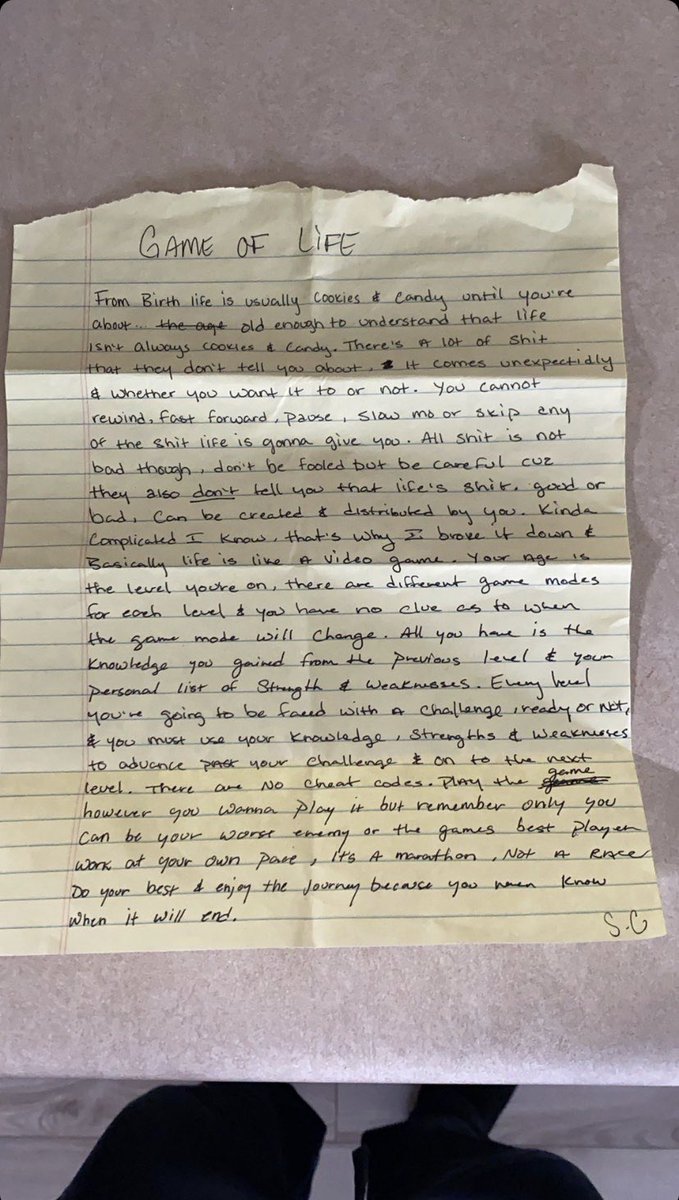 GAME OF LIFE
From Birth life is usually Cookies & Candy until you're
about... the age old enough to understand that life
isn't always cookies & Candy. There's A lot of shit
that they don't tell you about, & It comes unexpectidly
& whether you want it to or not. You cannot
rewind, fast forward, pause, slow mo or skip any
of the shit life is gonna give you. All shit is not
bad though, don't be fooled but be careful cuz
they also don't tell you that life's shit, good or
bad, Can be created & distributed by you. Kinda
Complicated I know, that's why I broke it down &
Basically life is like A video game. Your Age is
the level you're on, there are different game modes
for each level & you have no clue as to when
the game mode will change. All you have is the
knowledge you gained from the previous level & your
personal list of Strength & Weaknesses. Every level
you're going to be faced with A challenge, ready or Not,
& you must use your knowledge, strengths & weaknesses
to advance past your challenge & on to the next
level. There are No cheat codes. Play the game
however you wanna play it but remember only you
Can be your worse enemy or the games best player
work at your own pace, it's A marathon, Not A RACE
Do your best & enjoy the Journey because you never know
when it will end.
S.G